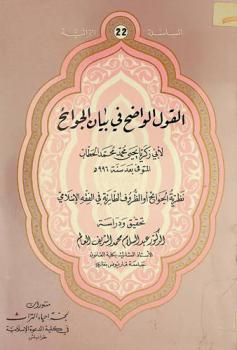 السلسلة التراثية 22
القول الواضح في بيان الجوائح
لأبي زكريا يحيى محمد محمد الحطاب
المتوفى بعد سنة ٩٩٦ هـ
نظرية الجوائح أو الظروف الطارئة في الفقه الإسلامي
تحقيق ودراسة
الدكتور عبد السلام محمد الشريف العالم
الأستاذ المشارك بكلية القانون
جامعة قار يونس بنغازي
منشورات
لجنة إحياء التراث
في كلية الدعوة الإسلامية
طرابلس